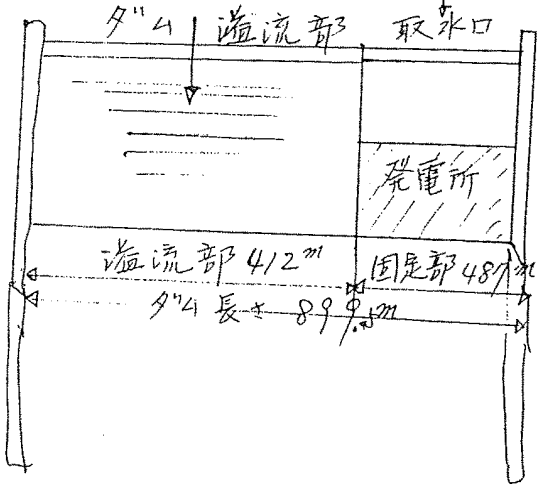 ダム 溢流部 取水口
発電所
溢流部 412m 固定部 487m
ダム長さ 899.5m